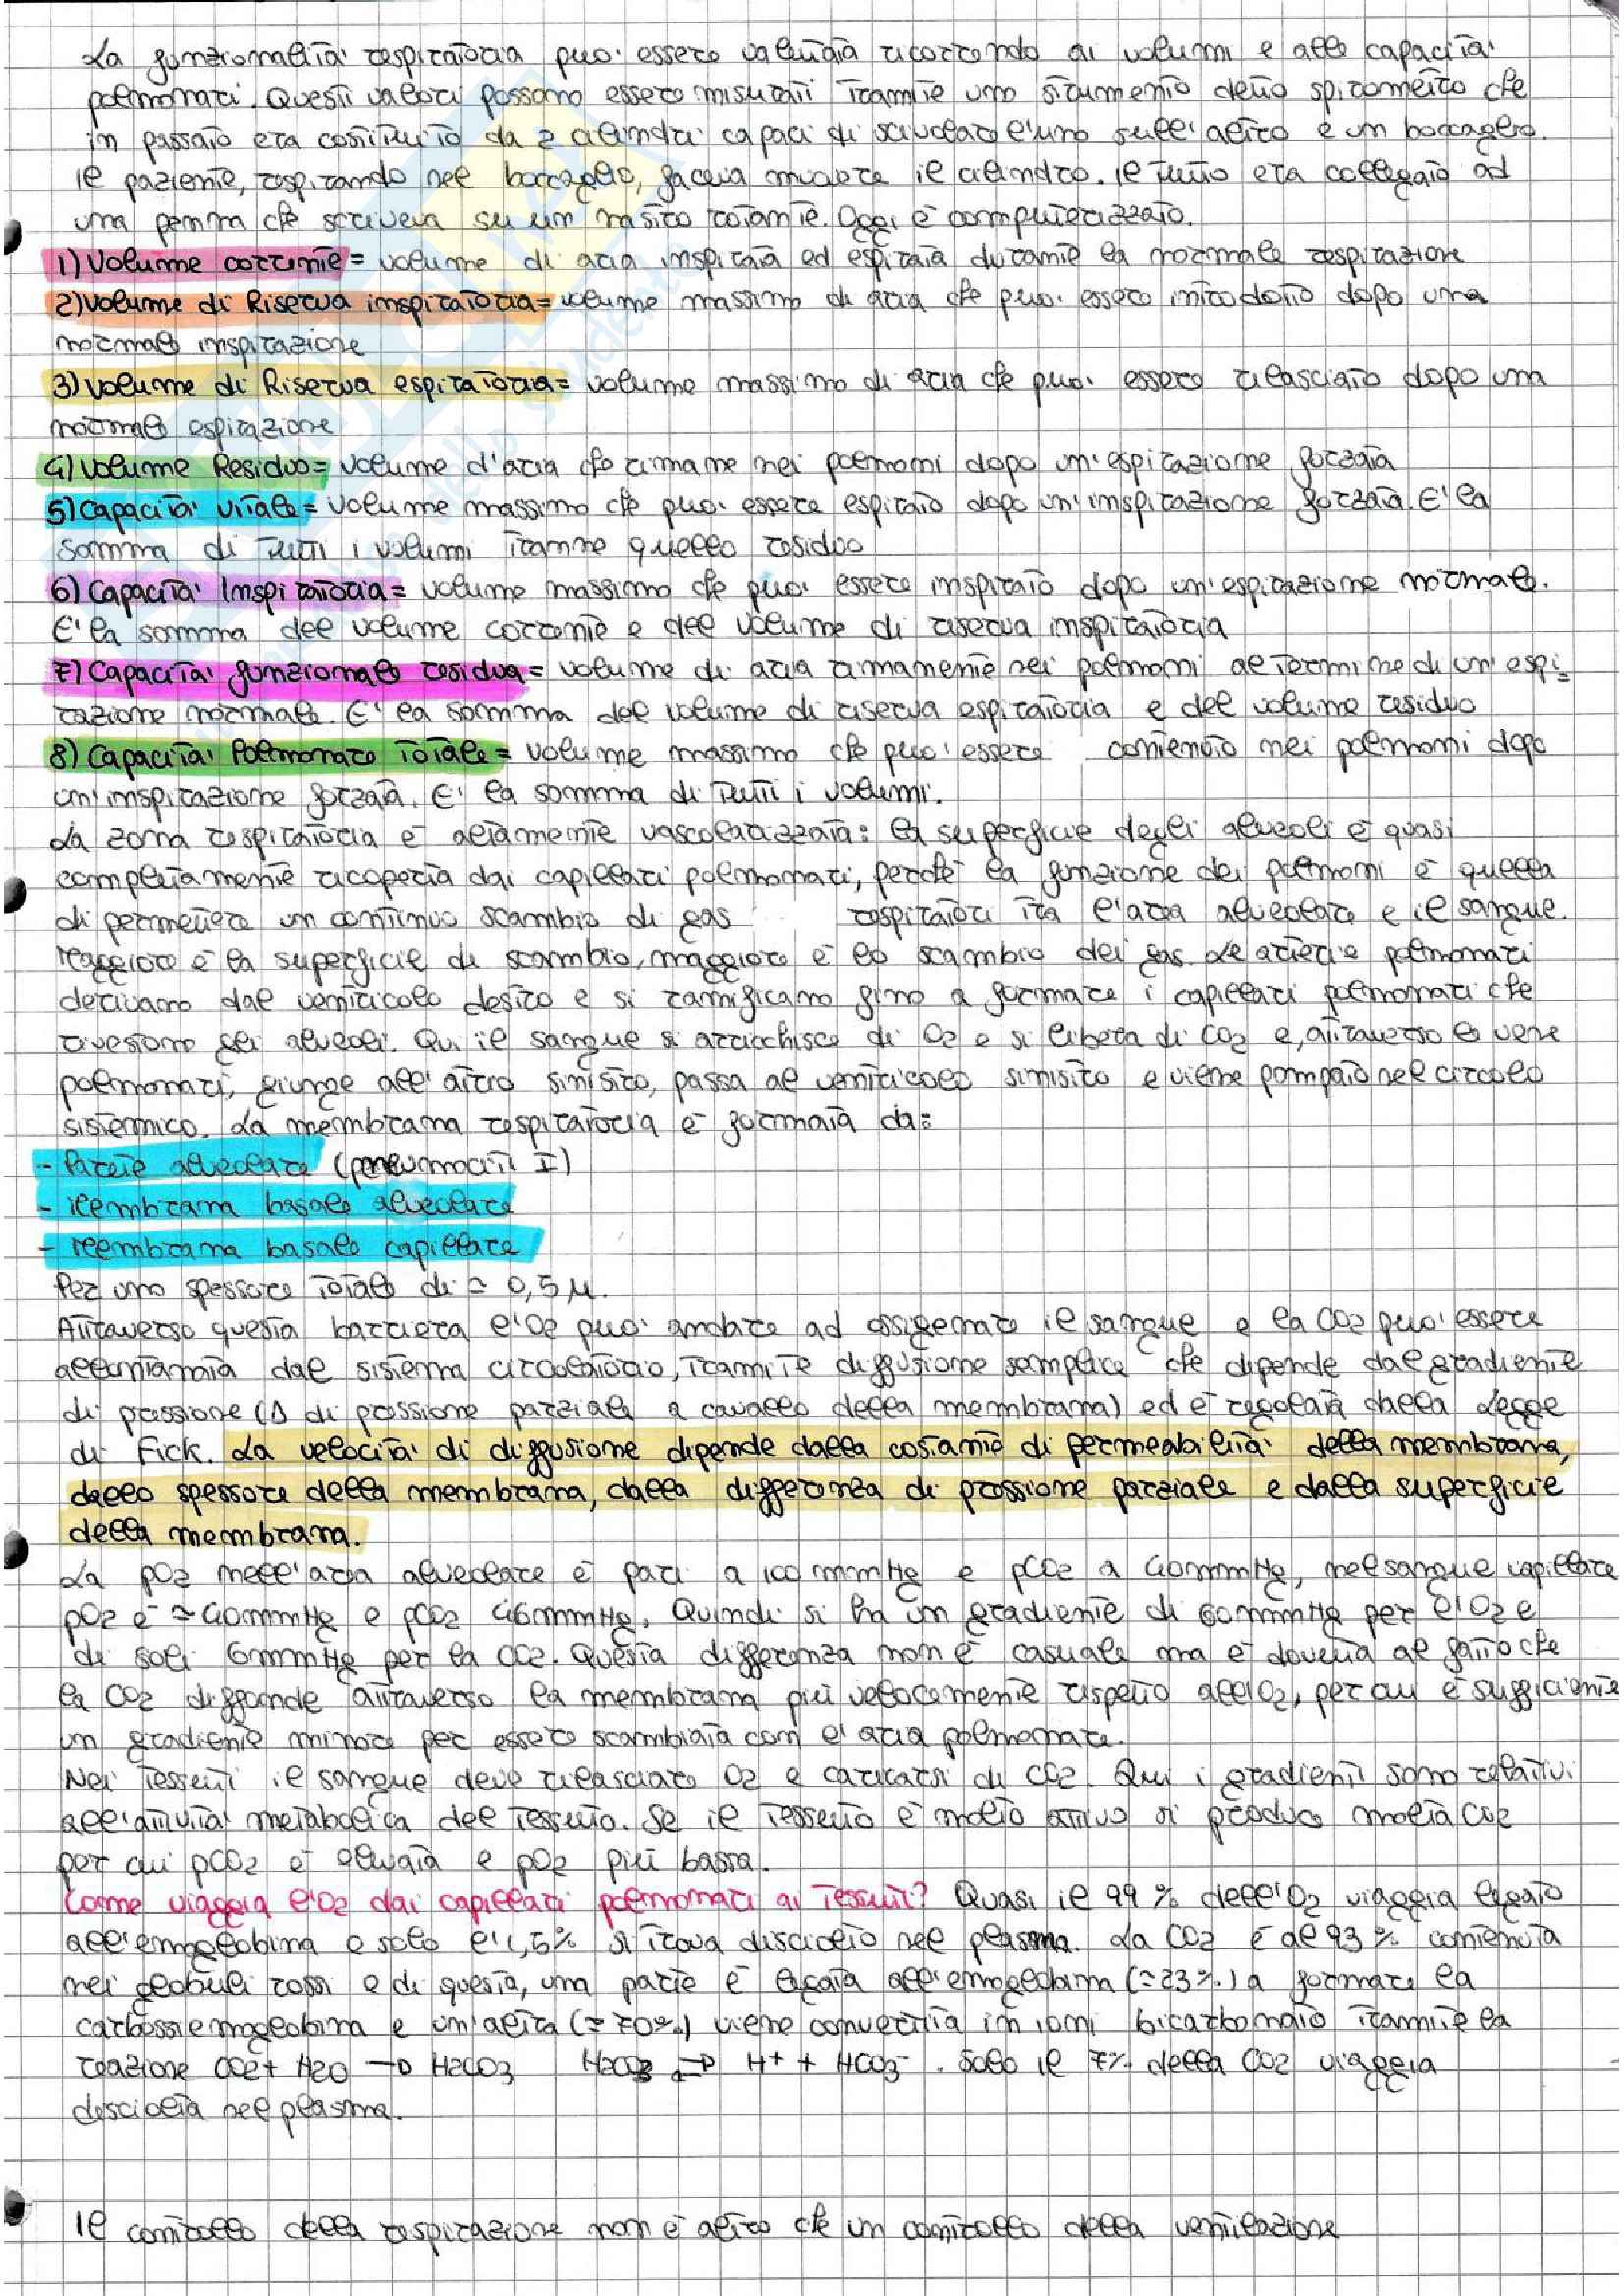 La funzionalità respiratoria può essere valutata ricorrendo ai volumi e alle capacità
polmonari. Questi valori possono essere misurati tramite uno strumento detto spirometro che
in passato era costituito da 2 cilindri capaci di scivolare l'uno sull'altro e un boccaglio.
Il paziente, respirando nel boccaglio, faceva muovere il cilindro. Il tutto era collegato ad
una penna che scriveva su un nastro rotante. Oggi è computerizzato.
1) Volume corrente = volume di aria inspirata ed espirata durante la normale respirazione
2) Volume di Riserva inspiratoria = volume massimo di aria che può essere introdotto dopo una
normale inspirazione
3) Volume di Riserva espiratoria = volume massimo di aria che può essere rilasciato dopo una
normale espirazione
4) Volume Residuo = volume d'aria che rimane nei polmoni dopo un'espirazione forzata
5) Capacità vitale = volume massimo che può essere espirato dopo un'inspirazione forzata. E' la
somma di tutti i volumi tranne quello residuo
6) Capacità Inspiratoria = volume massimo che può essere inspirato dopo un'espirazione normale.
E' la somma del volume corrente e del volume di riserva inspiratoria
7) Capacità funzionale residua = volume di aria rimanente nei polmoni al termine di un'espi-
razione normale. E' la somma del volume di riserva espiratoria e del volume residuo
8) Capacità Polmonare Totale = volume massimo che può essere contenuto nei polmoni dopo
un'inspirazione forzata. E' la somma di tutti i volumi.
La zona respiratoria è altamente vascolarizzata: la superficie degli alveoli è quasi
completamente ricoperta dai capillari polmonari, perchè la funzione dei polmoni è quella
di permettere un continuo scambio di gas respiratori tra l'aria alveolare e il sangue.
Maggiore è la superficie di scambio, maggiore è lo scambio dei gas. Le arterie polmonari
derivano dal ventricolo destro e si ramificano fino a formare i capillari polmonari che
rivestono gli alveoli. Qui il sangue si arricchisce di O2 e si libera di CO2 e, attraverso le vene
polmonari, giunge all'atrio sinistro, passa al ventricolo sinistro e viene pompato nel circolo
sistemico. La membrana respiratoria è formata da:
- Parete alveolare (pneumociti I)
- Membrana basale alveolare
- Membrana basale capillare
Per uno spessore totale di ≃ 0,5 μ.
Attraverso questa barriera l'O2 può andare ad ossigenare il sangue e la CO2 può essere
allontanata dal sistema circolatorio, tramite diffusione semplice che dipende dal gradiente
di pressione (Δ di pressione parziale a cavallo della membrana) ed è regolata dalla Legge
di Fick. La velocità di diffusione dipende dalla costante di permeabilità della membrana,
dallo spessore della membrana, dalla differenza di pressione parziale e dalla superficie
della membrana.
La pO2 nell'aria alveolare è pari a 100 mmHg e pCO2 a 40mmHg, nel sangue capillare
pO2 è ≃ 40mmHg e pCO2 46mmHg. Quindi si ha un gradiente di 60mmHg per l'O2 e
di soli 6mmHg per la CO2. Questa differenza non è casuale ma è dovuta al fatto che
la CO2 diffonde attraverso la membrana più velocemente rispetto all'O2, per cui è sufficiente
un gradiente minore per essere scambiata con l'aria polmonare.
Nei tessuti il sangue deve rilasciare O2 e caricarsi di CO2. Qui i gradienti sono relativi
all'attività metabolica del tessuto. Se il tessuto è molto attivo si produce molta CO2
per cui pCO2 è elevata e pO2 più bassa.
Come viaggia l'O2 dai capillari polmonari ai tessuti? Quasi il 99 % dell'O2 viaggia legato
all'emoglobina e solo l'1,5% si trova disciolto nel plasma. La CO2 è al 93 % contenuta
nei globuli rossi e di questa, una parte è legata all'emoglobina (≃23%) a formare la
carbossiemoglobina e un'altra (≃70%) viene convertita in ioni bicarbonato tramite la
reazione CO2 + H2O → H2CO3 H2CO3 ⇄ H+ + HCO3-. Solo il 7% della CO2 viaggia
disciolta nel plasma.
Il controllo della respirazione non è altro che un controllo della ventilazione